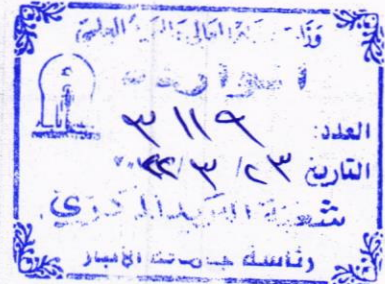 وزارة التعليم العالي والبحث العلمي
الواردة
العدد: ٣١١٩
التاريخ ٢٣ / ٣ / ٢٠٢٢
شعبة البريد المركزي
رئاسة جامعة الأنبار